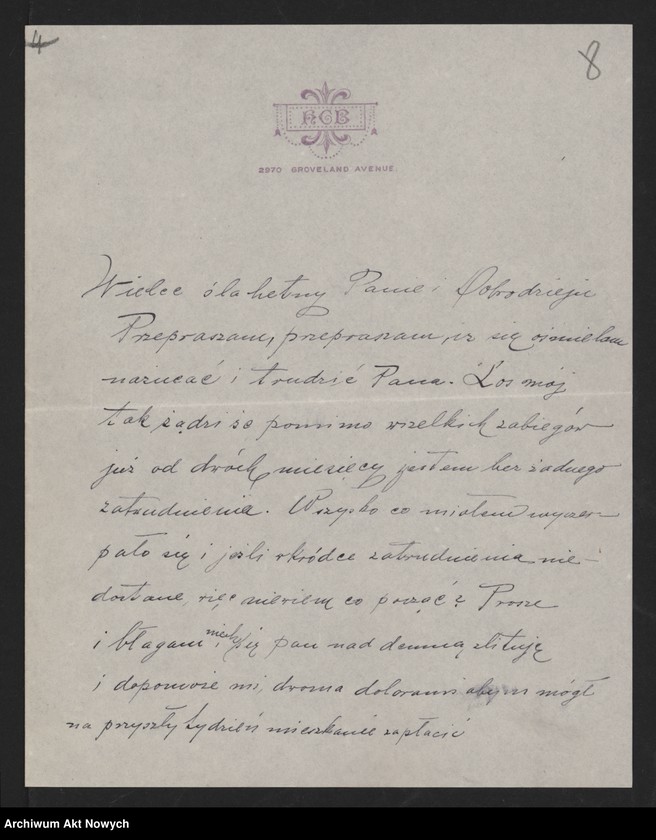 4
8
HCB
2970 GROVELAND AVENUE
Wielce ślahetny Panie i Dobrodzieju
Przepraszam, przepraszam, iz się ośmielam
narzucać i trudzić Pana. Los mój
tak sądzi że pomimo wszelkich zabiegów
już od dwóch miesięcy jestem bez żadnego
zatrudnienia. Wszysko co miałem wyczer-
pało się i jeźli wkródce zatrudnienia nie-
dostane, więc niewiem co począć? Prosze
i błagam niech się pan nad demną zlituję
i dopomoże mi, dwoma dolarami abym mógł
na przyszły tydzień mieszkanie zapłacić
Archiwum Akt Nowych